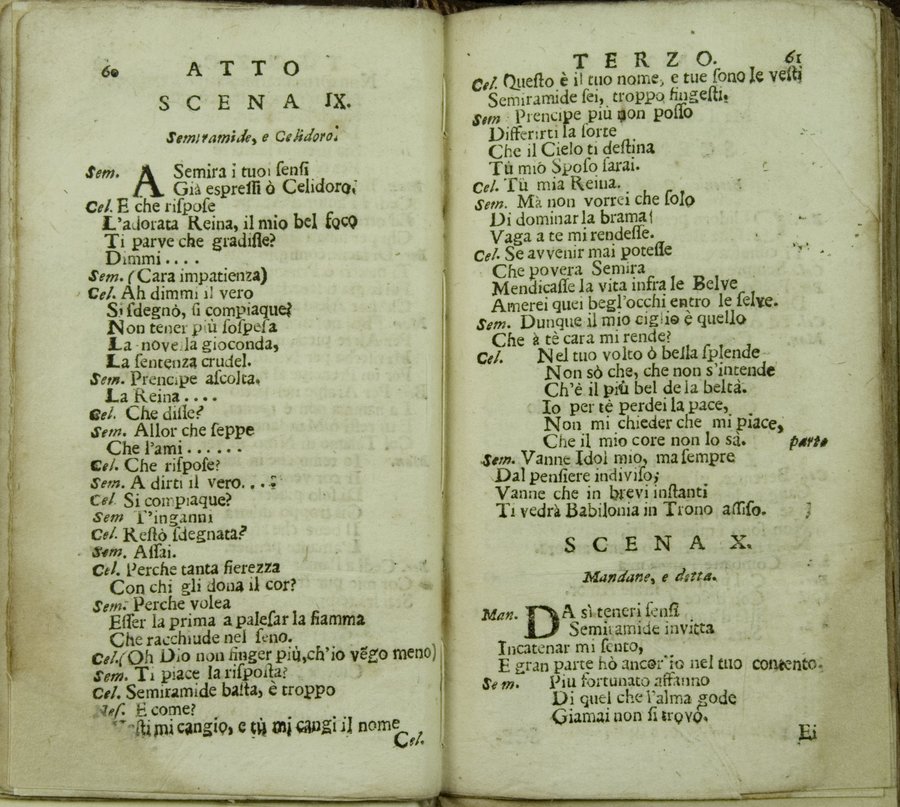 60 ATTO
SCENA IX.
Semiramide, e Celidoro.
Sem. A Semira i tuoi ſenſi
Già eſpreſſi ò Celidoro.
Cel. E che riſpoſe
L'adorata Reina, il mio bel foco
Ti parve che gradiſſe?
Dimmi....
Sem. (Cara impatienza)
Cel. Ah dimmi il vero
Si ſdegnò, ſi compiaque?
Non tener più ſoſpeſa
La novella gioconda,
La ſentenza crudel.
Sem. Prencipe aſcolta.
La Reina....
Cel. Che diſſe?
Sem. Allor che ſeppe
Che l'ami......
Cel. Che riſpoſe?
Sem. A dirti il vero....
Cel. Si compiaque?
Sem T'inganni
Cel. Reſtò ſdegnata?
Sem. Aſſai.
Cel. Perche tanta fierezza
Con chi gli dona il cor?
Sem. Perche volea
Eſſer la prima a paleſar la fiamma
Che racchiude nel ſeno.
Cel. (Oh Dio non finger più, ch'io vẽgo meno)
Sem. Ti piace la riſpoſta?
Cel. Semiramide baſta, è troppo
E come?
mi cangio, e tù mi cangi il nome
Cel.
TERZO. 61
Cel. Queſto è il tuo nome, e tue ſono le veſti
Semiramide ſei, troppo fingeſti.
Sem Prencipe più non poſſo
Differirti la ſorte
Che il Cielo ti deſtina
Tù mio Spoſo ſarai.
Cel. Tù mia Reina.
Sem. Mà non vorrei che ſolo
Di dominar la brama
Vaga a te mi rendeſſe.
Cel. Se avvenir mai poteſſe
Che povera Semira
Mendicaſſe la vita infra le Belve
Amerei quei begl'occhi entro le ſelve.
Sem. Dunque il mio ciglio è quello
Che à tè cara mi rende?
Cel. Nel tuo volto ò bella ſplende
Non sò che, che non s'intende
Ch'è il più bel de la beltà.
Io per tè perdei la pace,
Non mi chieder che mi piace,
Che il mio core non lo sà. parte
Sem. Vanne Idol mio, ma ſempre
Dal penſiere indiviſo;
Vanne che in brevi inſtanti
Ti vedrà Babilonia in Trono aſſiſo.
SCENA X.
Mandane, e detta.
Man. DA sì teneri ſenſi
Semiramide invitta
Incatenar mi ſento,
E gran parte hò ancor'io nel tuo contento.
Sem. Più fortunato affanno
Di quel che l'alma gode
Giamai non ſi trovò.
Ei